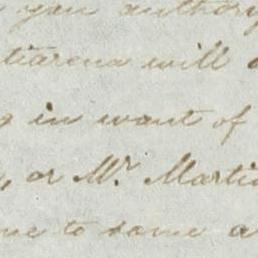 you authory
tiarena will
in want of
, or Mr. Marti
me to same a